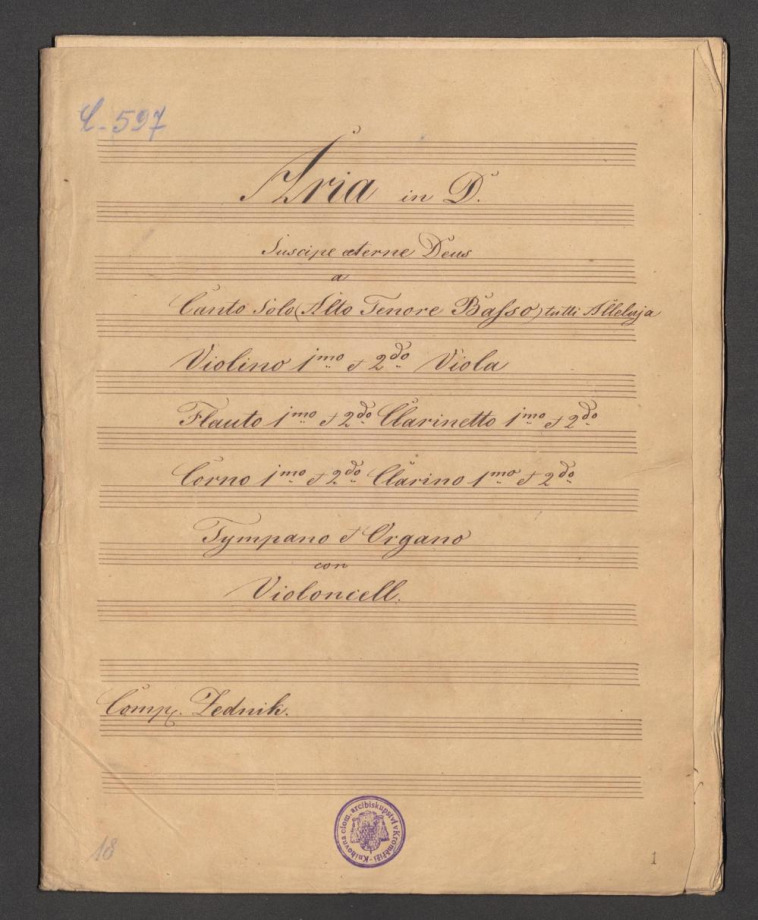 C-597
Aria in D.
Suscipe æterne Deus
a
Canto Solo (Alto Tenore Baſso) tutti Alleluja
Violino 1mo et 2do Viola
Flauto 1mo et 2do Clarinetto 1mo et 2do
Corno 1mo et 2do Clarino 1mo et 2do
Tympano et Organo
con
Violoncell.
Comp. Zednik.
Knihovna olom. arcibiskupství v Kroměříži
18
1